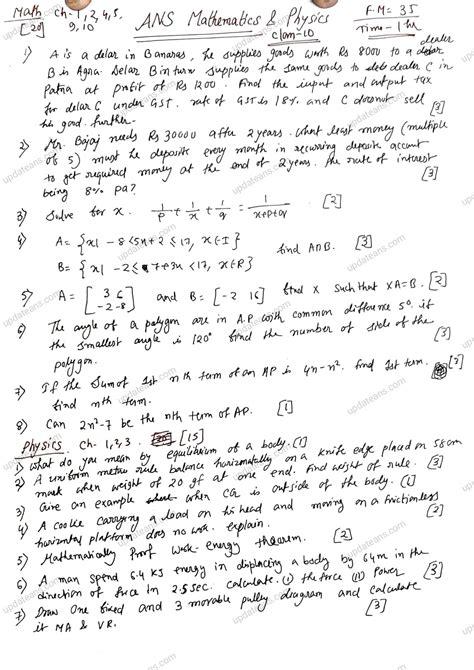 Math ch-1,2,4,5, 9,10 [20]
ANS Mathematics & Physics
class-10
F.M = 35
Time - 1 hr
1) A is a delar in Banaras, he supplies goods worth Rs 8000 to a dealer
B is Agra. Delar B in turn supplies the same goods to dealer C in
Patna at profit of Rs 1200. Find the input and output tax
for delar C under GST. rate of GST is 18% and C doesnot sell
his good. further. [3]
2) Mr. Bajaj needs Rs 30000 after 2 years. What least money (multiple
of 5) must he deposite every month in recurring deposite accunt
to get required money at the end of 2 years. The rate of interest
being 8% pa? [3]
3) Solve for x. 1/p + 1/x + 1/q = 1/x+p+q [2]
4) A = {x| -8<5x+2≤17, x∈I}
B = {x| -2≤7+3x<17, x∈R}
find A∩B. [3]
5) A = [3 6 -2 -8] and B = [-2 16] find X such that XA=B. [2]
6) The angle of a polygon are in A.P with common difference 5°. if
the smallest angle is 120° find the number of side of the
polygon. [3]
7) If the Sum of 1st n th term of an AP is 4n-n². find 1st term.
find nth term. [2]
8) Can 2n²-7 be the nth term of AP. [1]
Physics ch. 1,2,3. [15]
1) What do you mean by equilibrium of a body. (1)
2) A uniform metre rule balance horizontally on a knife edge placed on 58 cm
mark when weight of 20 gf at one end. Find weight of rule. [3]
3) Give an example when CG is outside of the body. [1]
4) A coolie carrying a load on his head and moving on a frictionless
horizontal platform does no work. explain. [2]
5) Mathematically Proof Work energy theorem. [2]
6) A man spend 6.4 KJ energy in displacing a body by 64 m in the
direction of force in 2.5 sec. calculate. (i) the force (ii) Power [3]
7) Draw one fixed and 3 movable pulley diagram and calculate
it MA & VR. [3]
updateans.com